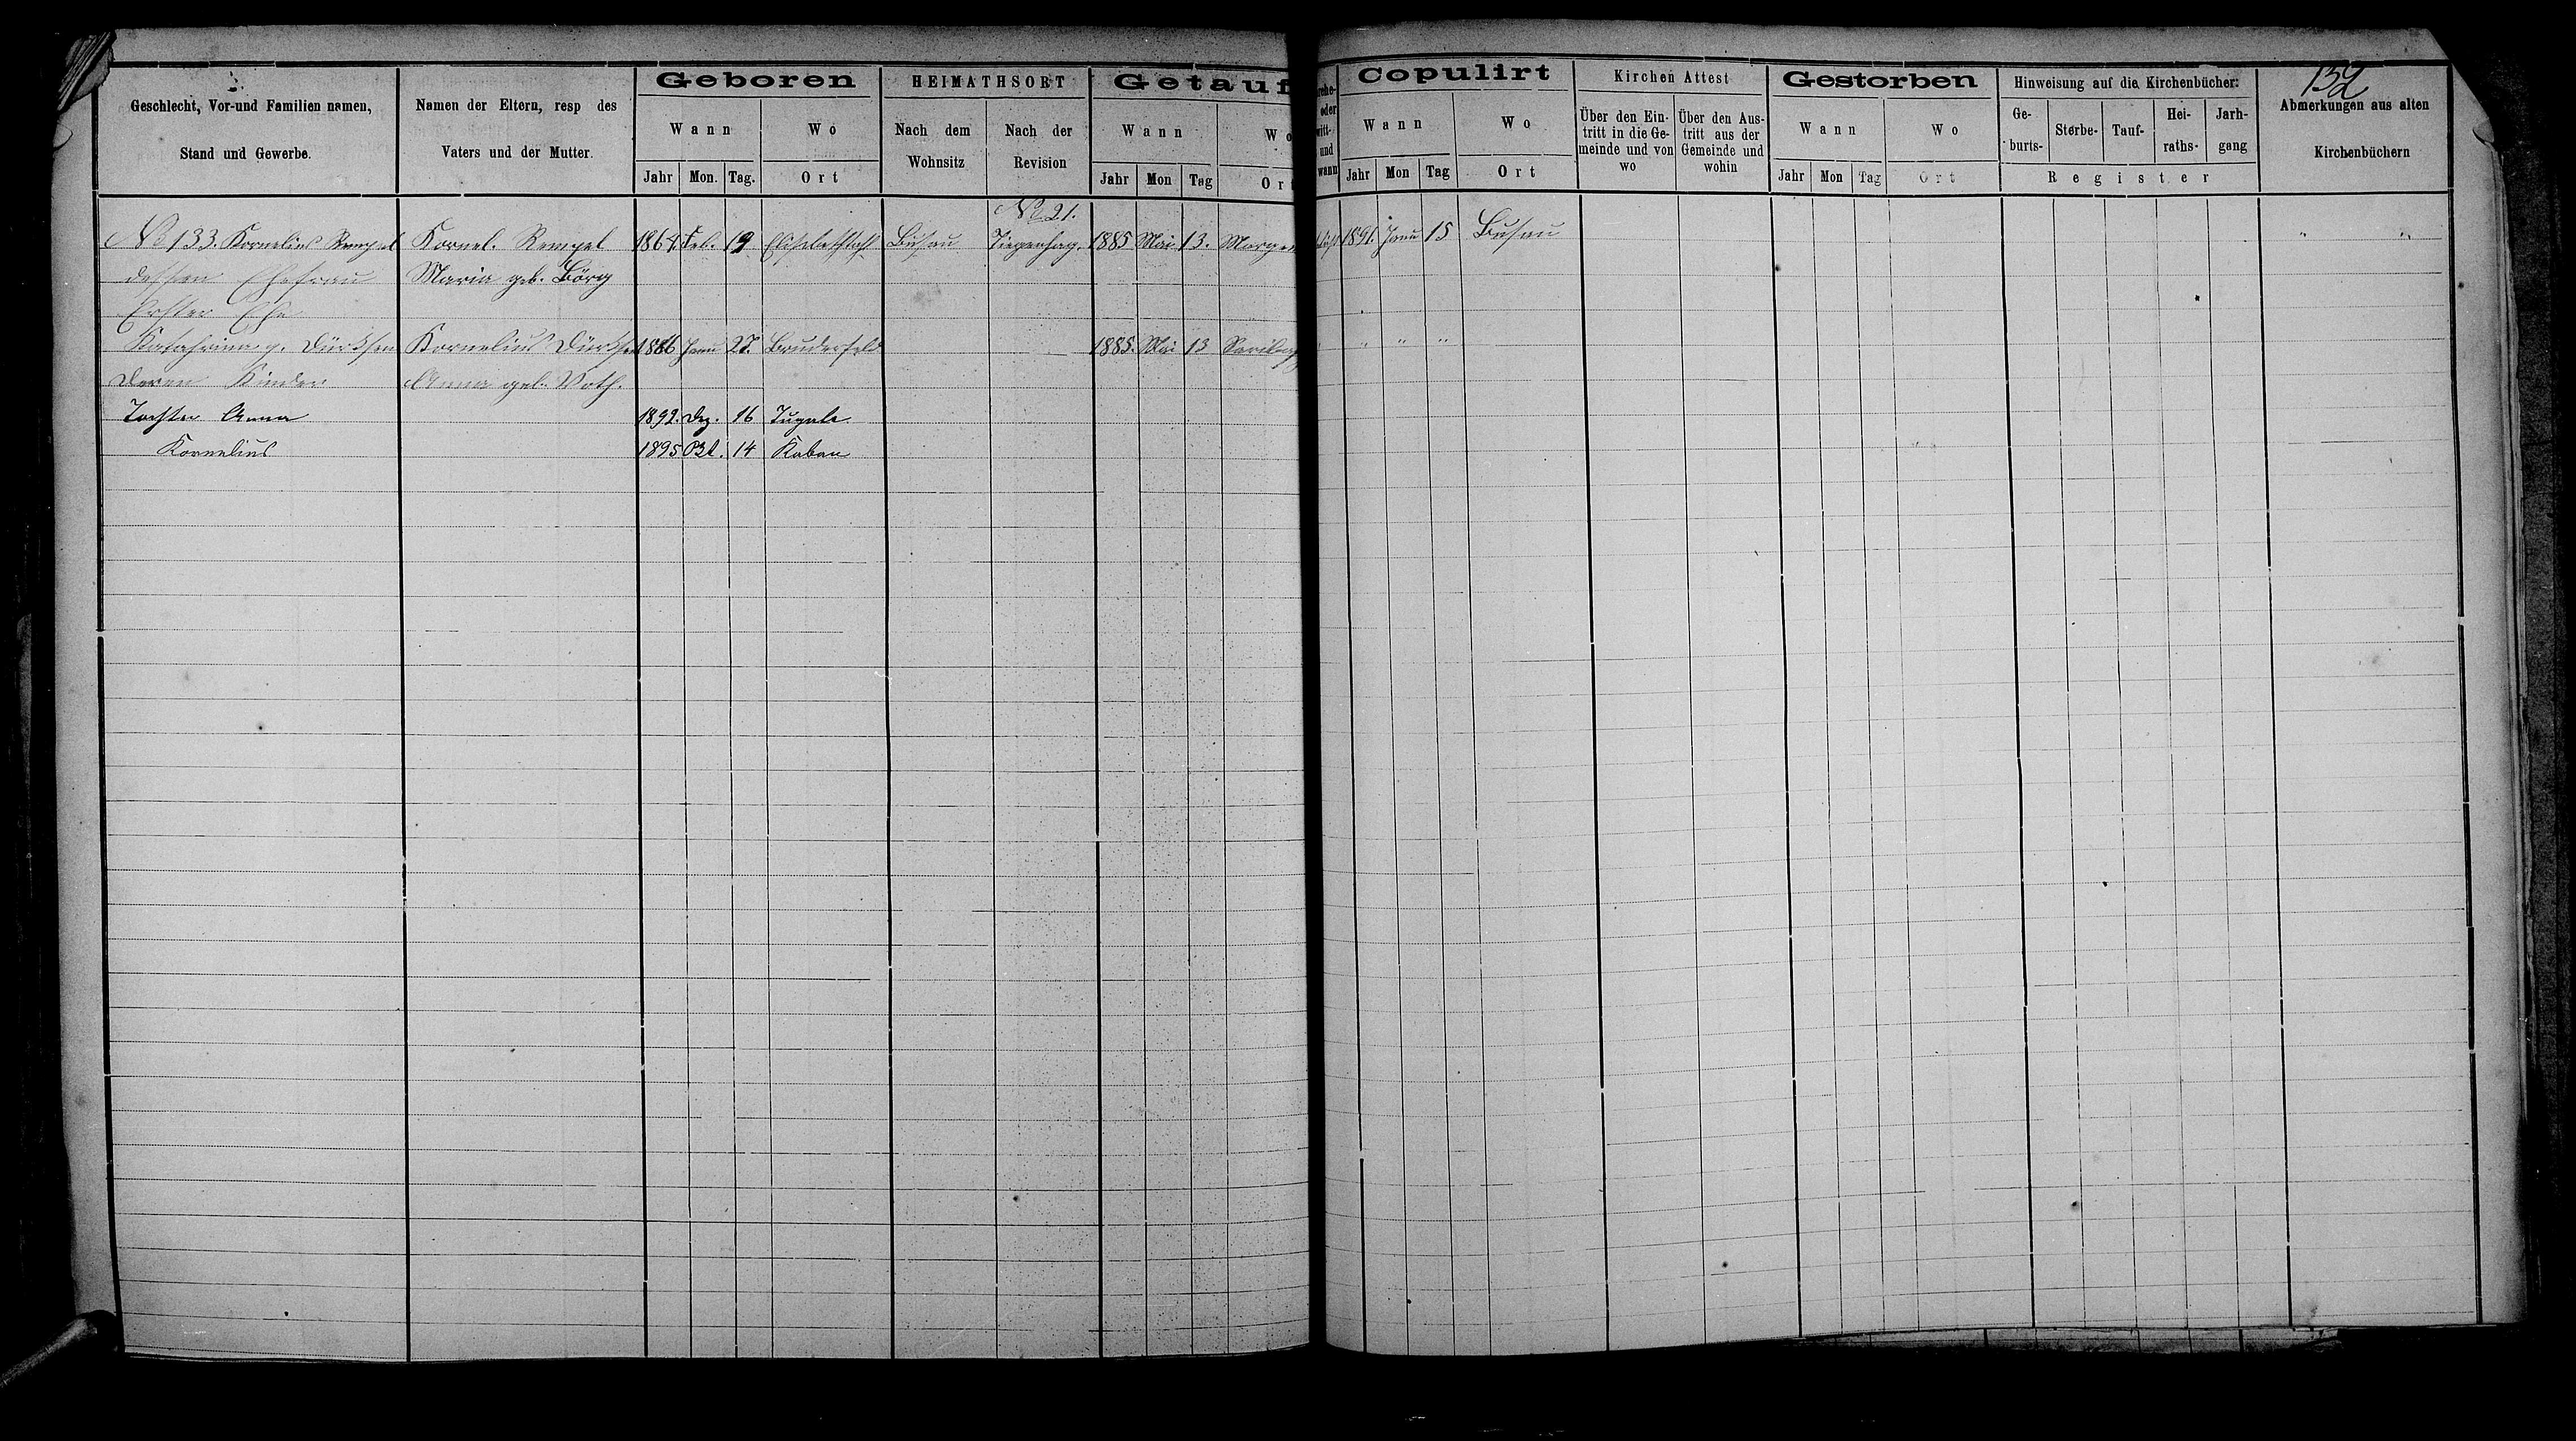 Geschlecht, Vor-und Familien namen, Stand und Gewerbe.
Namen der Eltern, resp des Vaters und der Mutter.
Geboren
Wann
Wo
Jahr Mon. Tag. Ort
HEIMATHSORT
Nach dem Wohnsitz
Nach der Revision
Getauf
Wann
Wo
Jahr Mon Tag Ort
rehe-
oder
witt-
und
wann
Copulirt
Wann
Wo
Jahr Mon Tag Ort
Kirchen Attest
Über den Ein-
tritt in die Ge-
meinde und von
wo
Über den Aus-
tritt aus der
Gemeinde und
wohin
Gestorben
Wann
Wo
Jahr Mon Tag Ort
Hinweisung auf die Kirchenbücher:
Ge-
burts-
Sterbe-
Tauf-
Hei-
raths-
Jarh-
gang
Register
152
Abmerkungen aus alten
Kirchenbüchern
No 21.
No 133. Kornelius Rempel Kornel. Rempel 1864. Feb. 19 Busau Tiegenhag. 1885 Mai 13. 1891. Janu 15 Busau " "
dessen Ehefrau Maria geb. Börg
Erster Ehe
Katahrina g. Dürksen Kornelius Dürksen Janu 27. Bruderfeld 1885. Mai 13 " " "
deren Kinder Anna geb. Voth.
Tochter Anna 1892. Dez. 16
Kornelius 1895 Okt. 14